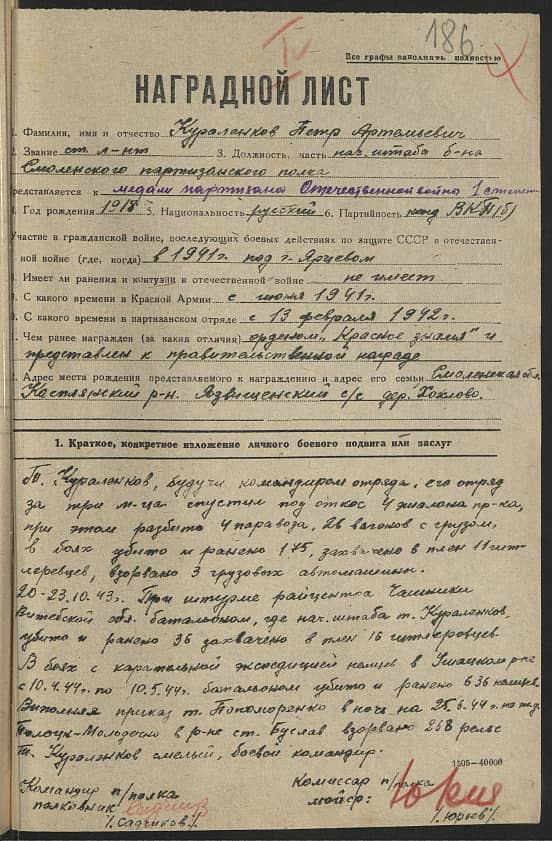 186
IV
Все графы заполнять полностью
НАГРАДНОЙ ЛИСТ
1. Фамилия, имя и отчество Кураленков Петр Артемьевич
2. Звание ст. л-нт 3. Должность, часть нач. штаба б-на
Смоленского партизанского полка
представляется к медали партизана Отечественной войны 1 степени
4. Год рождения 1918 5. Национальность русский 6. Партийность канд ВКП(б)
Участие в гражданской войне, последующих боевых действиях по защите СССР в отечествен-
ной войне (где, когда) в 1941 г. под г. Ярцевом
8. Имеет ли ранения и контузии в отечественной войне не имеет
9. С какого времени в Красной Армии с июня 1941 г.
0. С какого времени в партизанском отряде с 13 февраля 1942 г.
1. Чем ранее награжден (за какия отличия) орденом „Красное знамя" и
представлен к правительственной награде
2. Адрес места рождения представляемого к награждению и адрес его семьи Смоленская обл.
Каспля́нский р-н. Язвищенский с/с дер. Хохлово.
1. Краткое, конкретное изложение личного боевого подвига или заслуг
Т. Кураленков, будучи командиром отряда, его отряд
за три м-ца спустил под откос 4 эшалона пр-ка,
при этом разбито 4 паравоза, 26 вагонов с грузом,
в боях убито и ранено 175, захвачено в плен 11 гит-
леревцев, взорвано 3 грузовых автомашины.
20-23.10.43г. При штурме райцентра Чашники
Витебской обл. батальоном, где нач. штаба т. Кураленков,
убито и ранено 36 захвачено в плен 16 гитлеровцев
В боях с карательной экспедицией немцев в Ушацком р-не
с 10.4.44г. по 10.5.44г. батальоном убито и ранено 636 немцев.
Выполняя приказ т. Пономоренко в ночь на 25.6.44г. на ж.д.
Полоцк-Молодечно в р-не ст. Буслав взорвано 258 рельс
Т. Кураленков смелый, боевой командир.
1505-40000
Командир п/полка
полковник
/. Садчиков ./.
Комиссар п/полка
майор:
/. Юрьев ./.